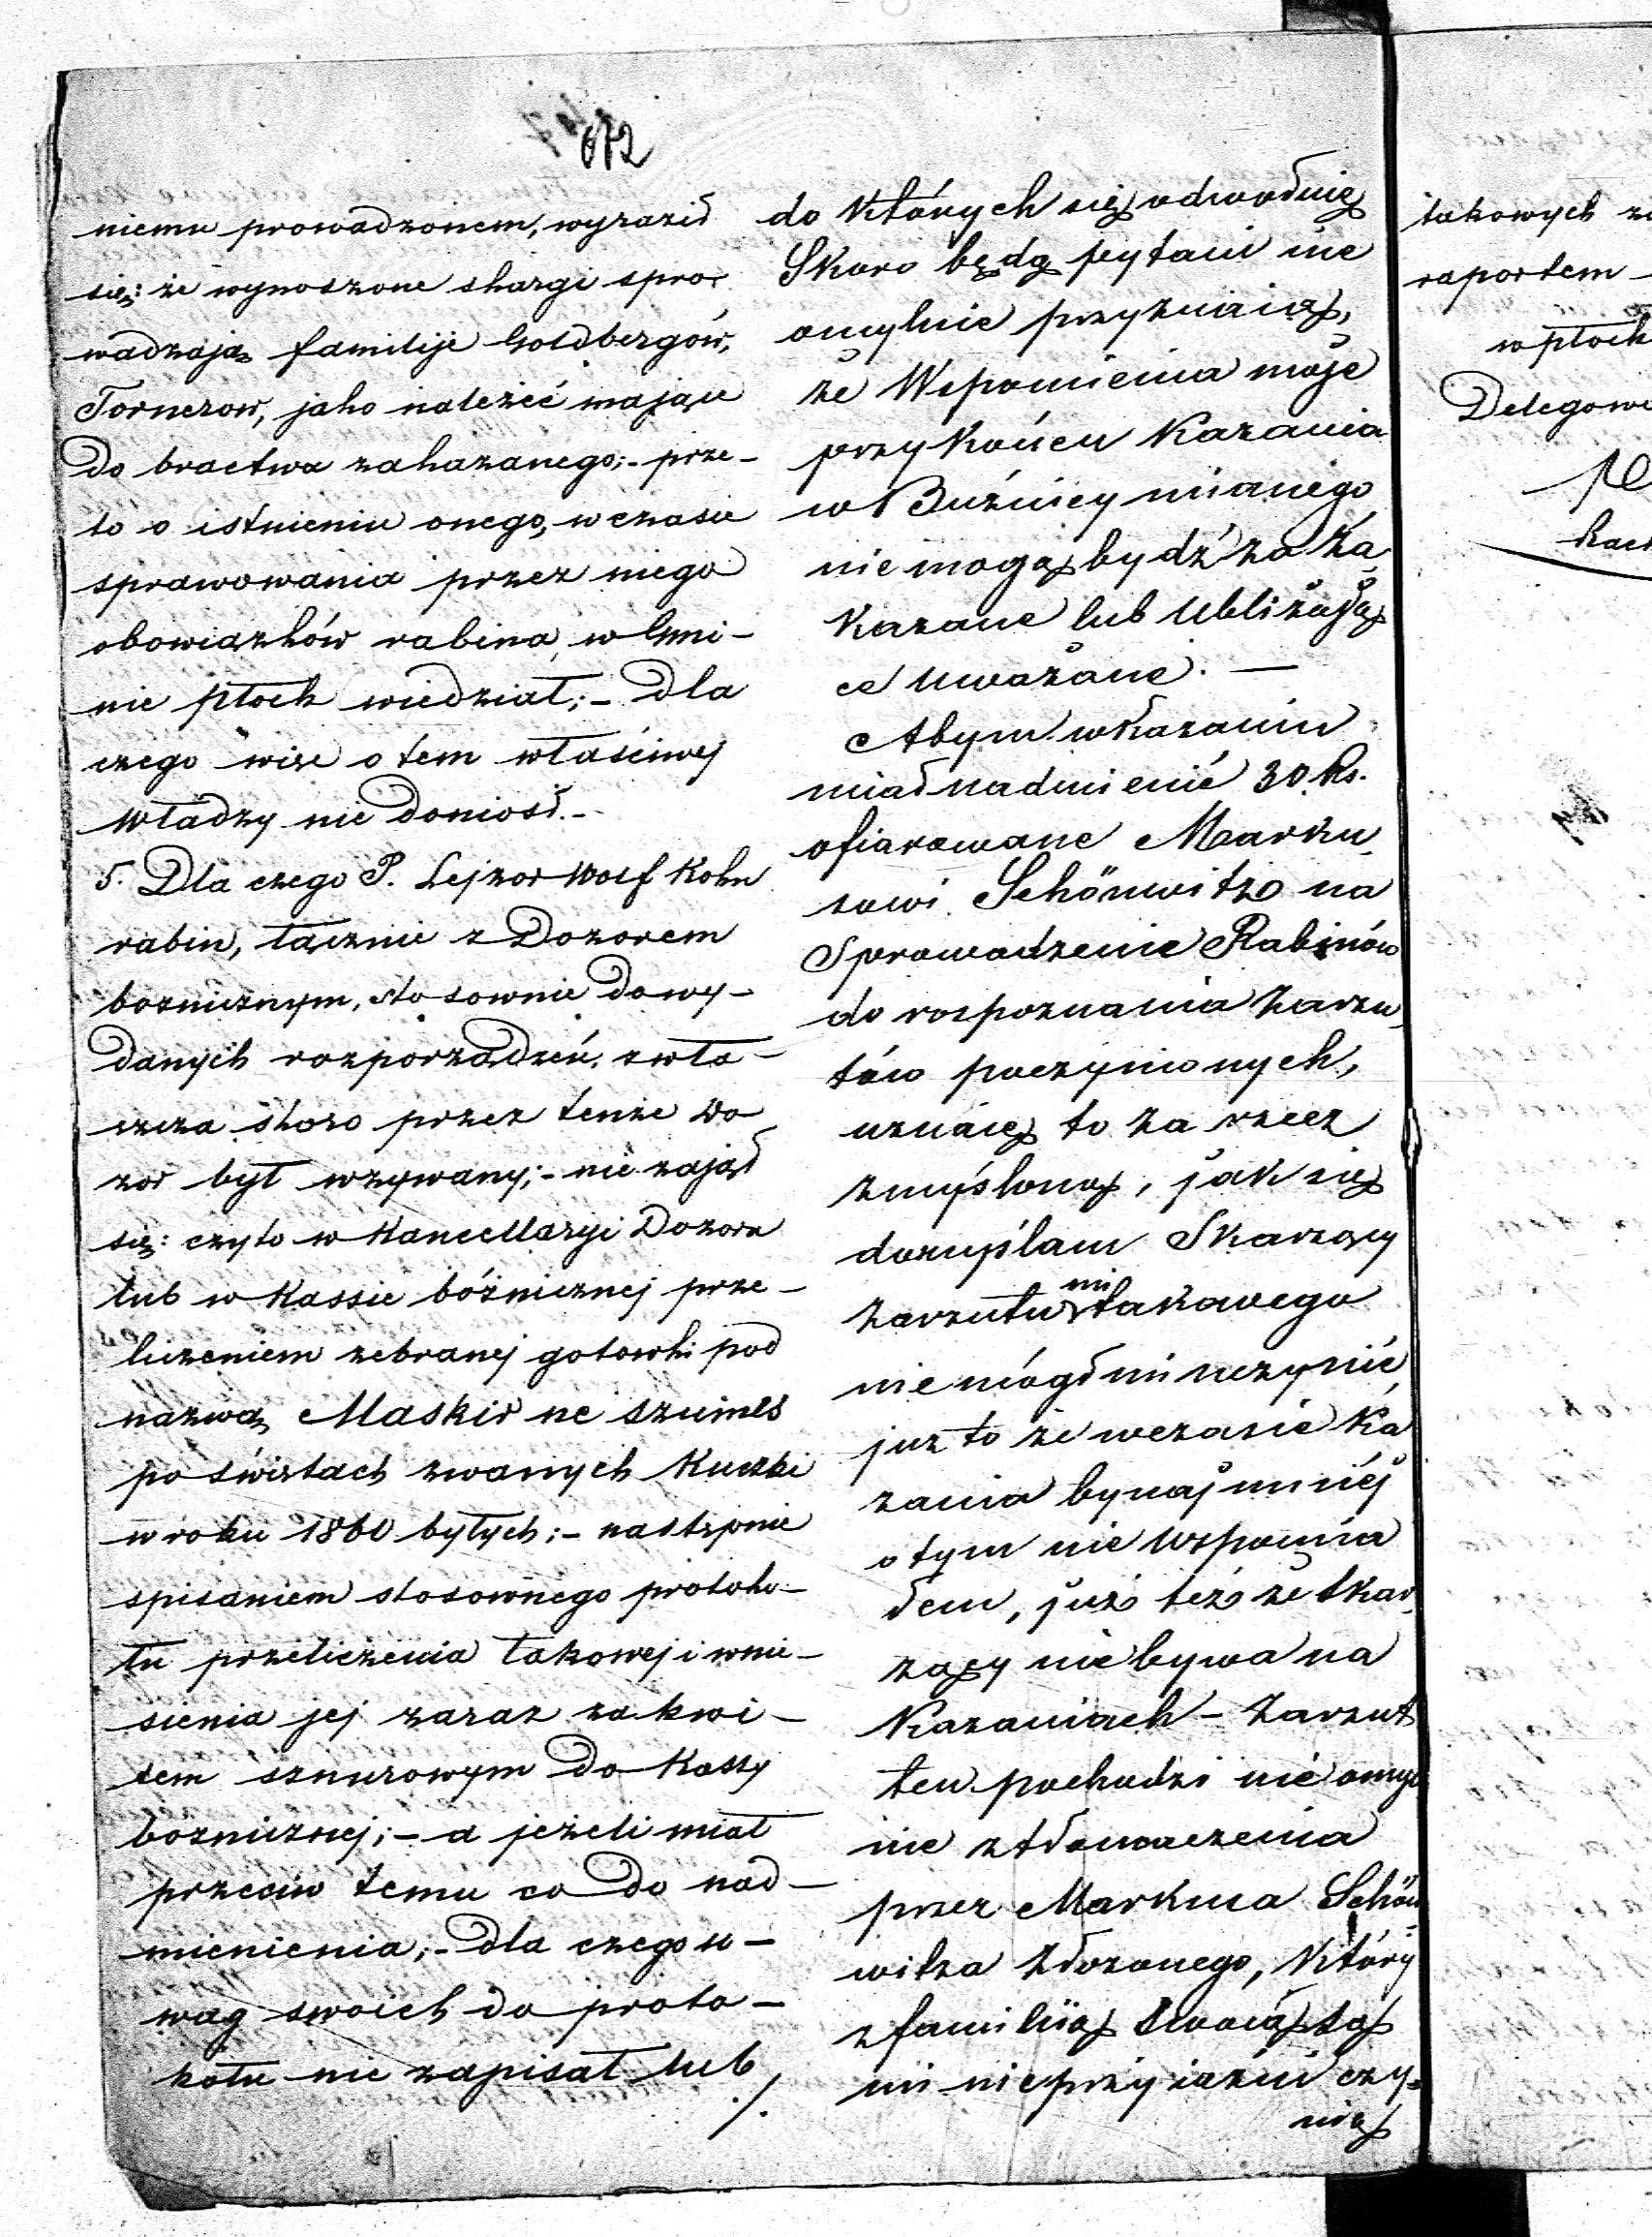 672
niemu prowadzonem, wyraził
się: że wynoszone skargi spro-
wadzają familije Goldbergów,
Tornerow, jako należeć mające
do bractwa zakazanego;- prze-
to o istnieniu onego, w czasie
sprawowania przez niego
obowiązków rabina, w Gmi-
nie Płock wiedział;- dla
czego więc o tem właściwej
władzy nie doniosł.-
5. Dla czego P. Lejzor Wolf Kohn
rabin, łącznie z Dozorem
boznicznym, stosownie do wy-
danych rozporządzeń, zwła-
szcza skoro przez tenże Do
zór był wzywany;- nie zajął
się: czyto w Kancellaryi Dozoru
lub w Kassie bóżnicznej prze-
liczeniem zebranej gotowki pod
nazwą Maskir ne szumes
po świętach zwanych Kuczki
w roku 1860 byłych;- następnie
spisaniem stosownego protoko-
łu przeliczenia takowej i wnie-
sienia jej zaraz za kwi-
tem sznurowym do Kassy
boznicznej;- a jeżeli miał
przeciw temu co do nad-
mienienia;- dla czego u-
wag swoich do proto-
kołu nie zapisał lub
./.
do których się odwołuię
Skoro będą pytani nie
omylnie przyznaią,
że Wspomienia moje
przy końcu Kazania
w Bużnicy mianego
nie mogą bydź za Za
kazane lub Ubliżają
ce uważane. —
Abym w kazaniu
miał nadmienić 30 Rs.
ofiarowane Marku
sowi Schönwitz na
Sprowadzenie Rabinów
do rozpoznania Zarzu
tów poczynionych,
uznaię to za rzecz
zmyśloną, jak się
domyślam Skarzący
zarzutu mi takowego
nie mógł mi uczynić,
juz to że wczasie Ka
zania bynajmniéj
o tym nie Wspomia
łem, już też że Skar
zący nie bywa na
Kazaniach - Zarzut
ten pochodzi nie omyl
nie z tłomaczenia
przez Markusa Schön
witza złożonego, który
z familiią swoią są
mi nieprzyiaźni czy-
nią
takowych
raportem -
w płock
Delegowa